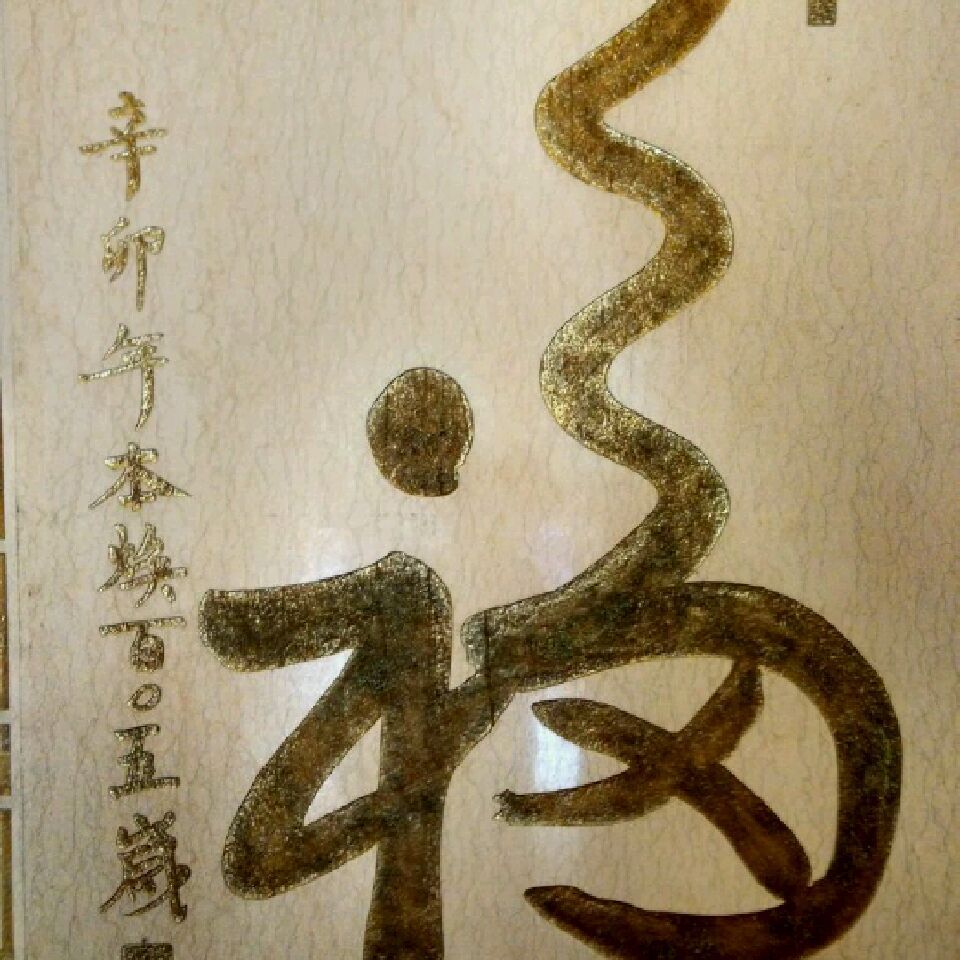 福
辛卯年本焕百〇五歲